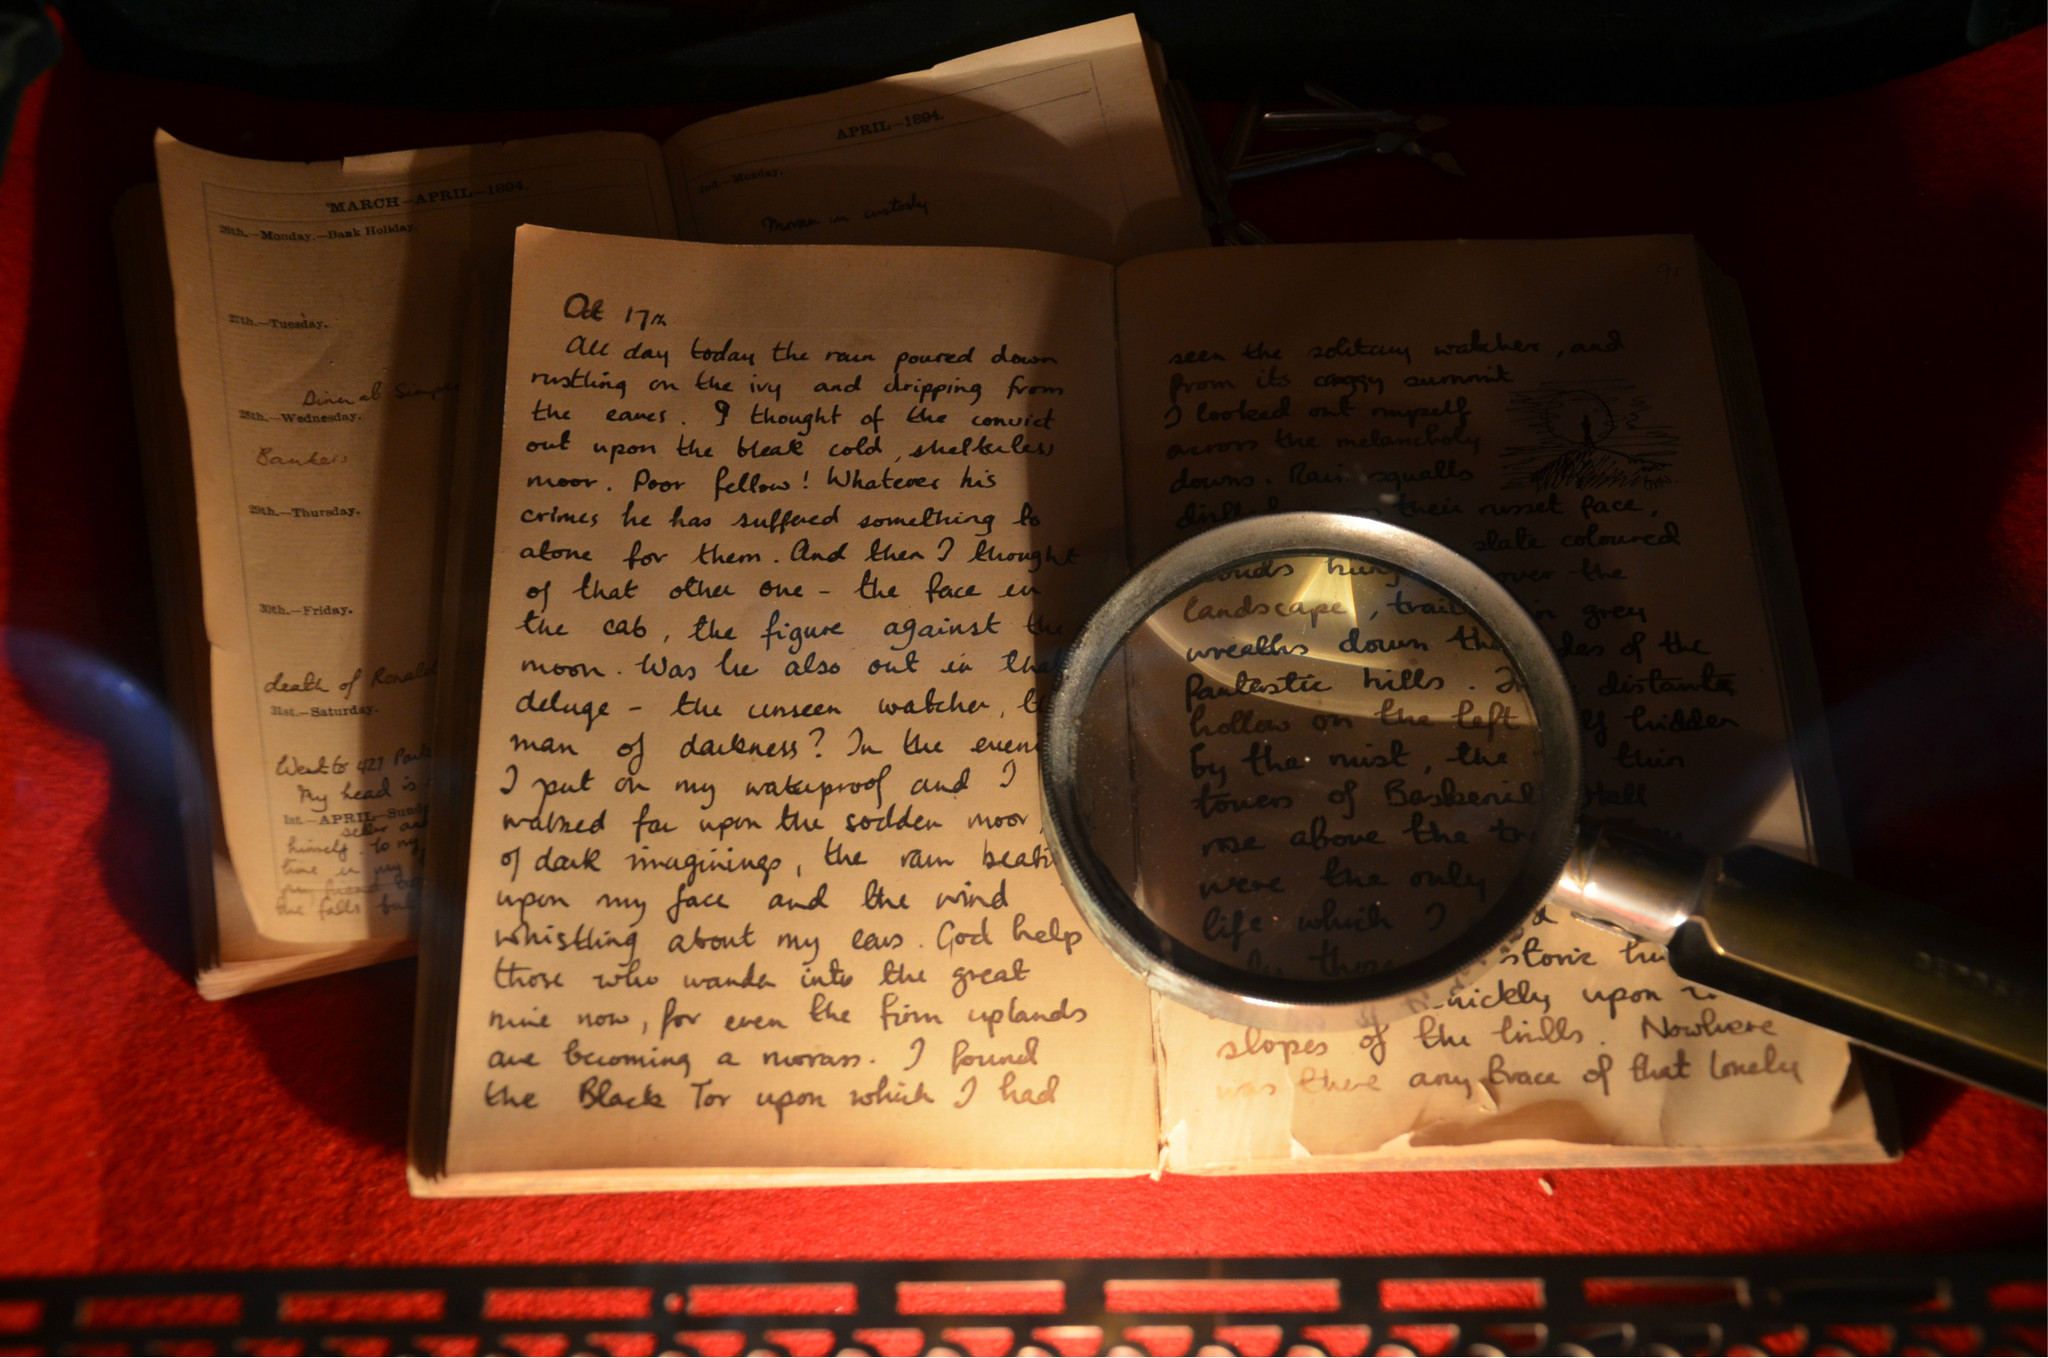 MARCH—APRIL—1894.
26th.—Monday.—Bank Holiday.
27th.—Tuesday.
Diner at
28th.—Wednesday.
Bankers
29th.—Thursday.
30th.—Friday.
death of Ronald
31st.—Saturday.
Went to 427 Park
My head is
1st.—APRIL—Sund
himself. to my
time in my
my friend
the falls but
APRIL—1894.
2nd.—Monday.
Moran in custody
Oct 17th
All day today the rain poured down
rustling on the ivy and dripping from
the eaves. I thought of the convict
out upon the bleak cold, shelterless
moor. Poor fellow! Whatever his
crimes he has suffered something to
atone for them. And then I thought
of that other one - the face in
the cab, the figure against the
moon. Was he also out in that
deluge - the unseen watcher, the
man of darkness? In the even
I put on my waterproof and I
walked far upon the sodden moor
of dark imaginings, the rain beati
upon my face and the wind
whistling about my ears. God help
those who wander into the great
mire now, for even the firm uplands
are becoming a morass. I found
the Black Tor upon which I had
91
seen the solitary watcher, and
from its craggy summit
I looked out myself
across the melancholy
downs. Rain squalls
their russet face,
slate coloured
clouds hung over the
landscape, trail in grey
wreaths down the des of the
fantastic hills. In distant
hollow on the left lf hidden
by the mist, the thin
towers of Baskervil Hall
rose above the tr
were the only
life which I
ly those storic hu
hickly upon
slopes of the hills. Nowhere
was there any trace of that lonely